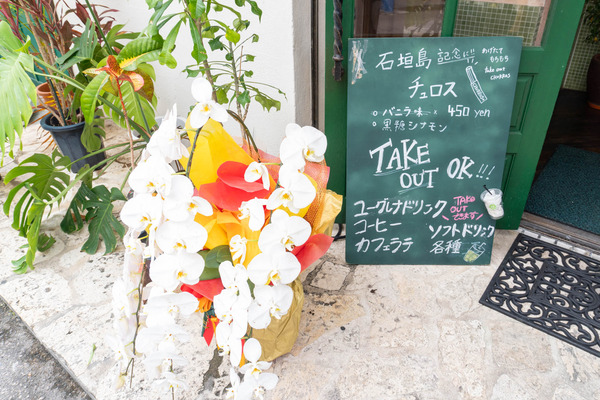 石垣島 記念に!!
あげたて
もちもち
take out
churros
チュロス
○ バニラ味 × 450 yen
○ 黒糖シナモン
TAKE
OUT OK!!!
ユーグレナドリンク
コーヒー
カフェラテ
TAKE
OUT
できます
ソフトドリンク
各種